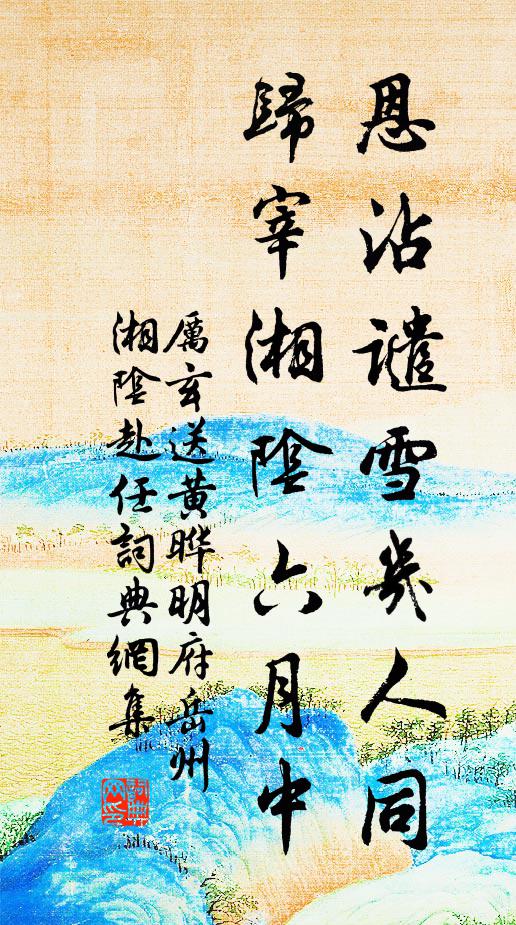 恩沾譴雪幾人同
歸宰湘陰六月中
厲玄送黄晔明府岳州
湘陰赴任詞典網集